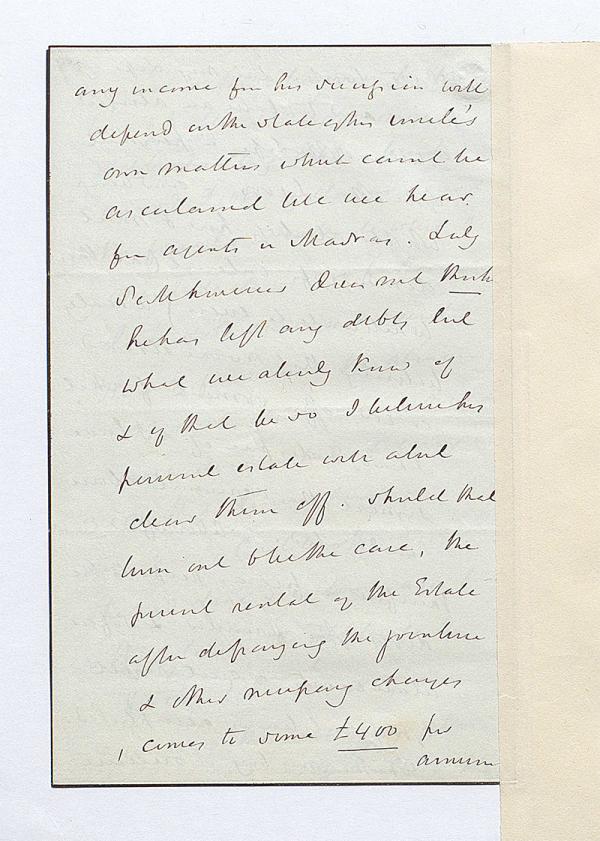 any income from his succession will
depend on the state of his uncle's
own matters which cannot be
ascertained till we hear
from agents in Madras. Lady
does not think
he has left any debts but
what we already know of
& if that be so I believe his
personal estate will about
clear them off. Should that
turn out to be the case, the
present rental of the Estate
after defraying the jointure
& other necessary charges
comes to some £400 per
annum